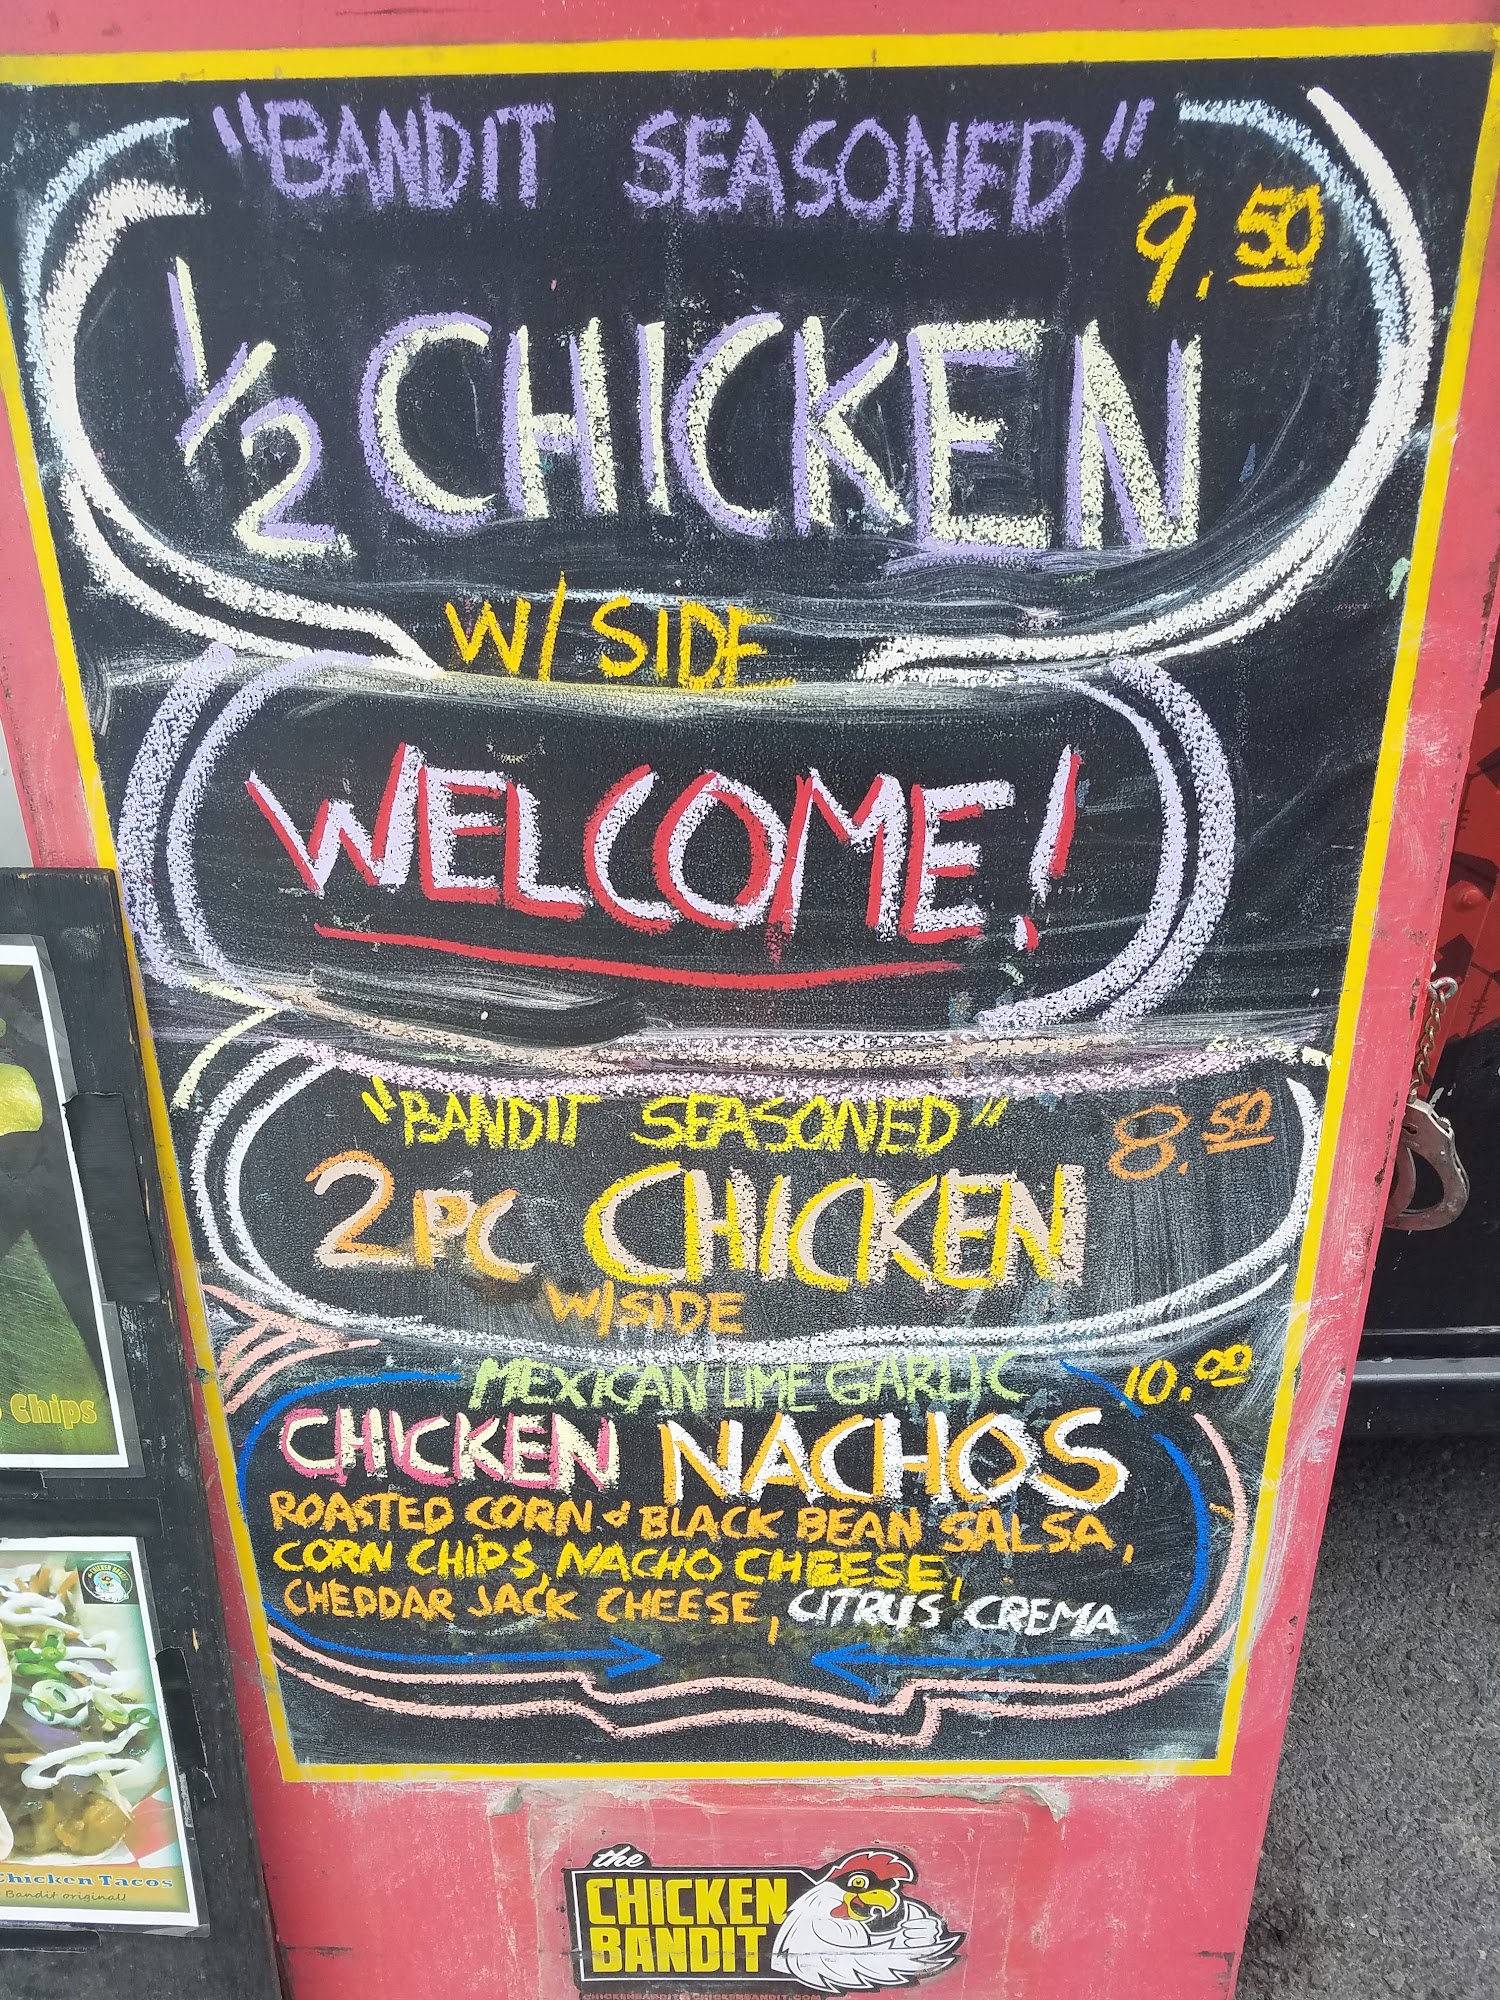 "BANDIT SEASONED"
9.50
1/2 CHICKEN
W/ SIDE
WELCOME!
"BANDIT SEASONED"
8.50
2PC CHICKEN
W/SIDE
MEXICAN LIME GARLIC
10.00
CHICKEN NACHOS
ROASTED CORN & BLACK BEAN SALSA,
CORN CHIPS, NACHO CHEESE,
CHEDDAR JACK CHEESE, CITRUS CREMA
Chips
Chicken Tacos
Bandit original!
the
CHICKEN
BANDIT